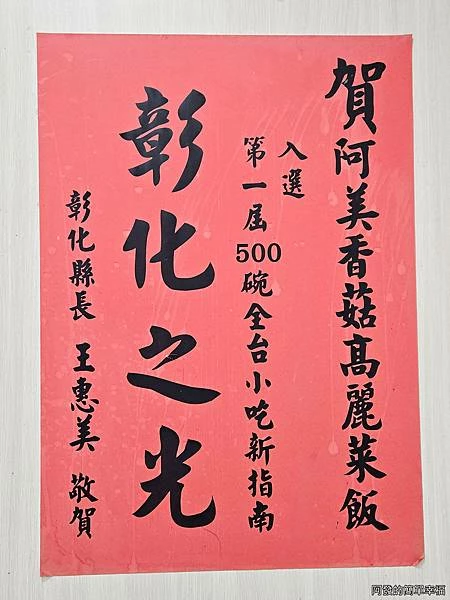 賀阿美香菇高麗菜飯
入選
第一屆500碗全台小吃新指南
彰化之光
彰化縣長 王惠美 敬賀
阿發的簡單幸福